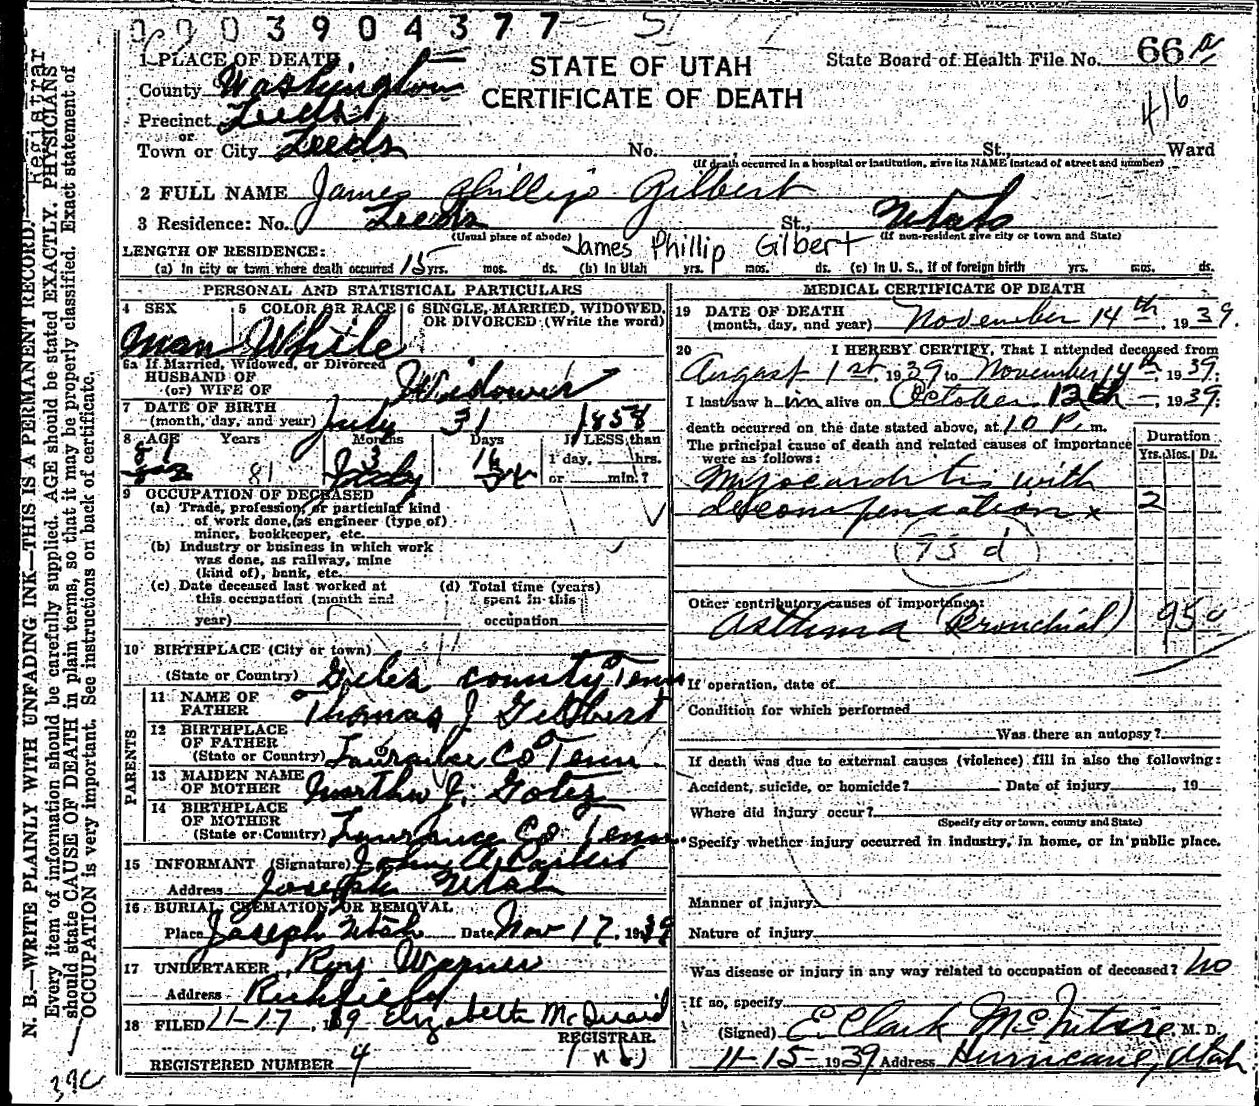 0 0 0 3 9 0 4 3 7 7
1 PLACE OF DEATH
STATE OF UTAH
CERTIFICATE OF DEATH
State Board of Health File No. 66 a
416
County Washington
Precinct Leeds
or
Town or City Leeds No. St., Ward
(If death occurred in a hospital or institution, give its NAME instead of street and number)
2 FULL NAME James Phillip Gilbert
3 Residence: No. Leeds St., Utah
(Usual place of abode) (If non-resident give city or town and State)
James Phillip Gilbert
LENGTH OF RESIDENCE:
(a) In city or town where death occurred 15 yrs. mos. ds. (b) In Utah yrs. mos. ds. (c) In U. S., if of foreign birth yrs. mos. ds.
PERSONAL AND STATISTICAL PARTICULARS
4 SEX 5 COLOR OR RACE 6 SINGLE, MARRIED, WIDOWED, OR DIVORCED (Write the word)
Man White
6a If Married, Widowed, or Divorced
HUSBAND OF
(or) WIFE OF Widower
7 DATE OF BIRTH
(month, day, and year) July 31 1858
8 AGE Years Months Days If LESS than
81 3 16 1 day, hrs.
81 July or min.?
9 OCCUPATION OF DECEASED
(a) Trade, profession, or particular kind
of work done, (as engineer (type of)
miner, bookkeeper, etc.
(b) Industry or business in which work
was done, as railway, mine
(kind of), bank, etc.
(c) Date deceased last worked at
this occupation (month and
year)
(d) Total time (years)
spent in this
occupation
10 BIRTHPLACE (City or town)
(State or Country) Giles county Tenn
PARENTS
11 NAME OF
FATHER Thomas J. Gilbert
12 BIRTHPLACE
OF FATHER
(State or Country) Co Tenn
13 MAIDEN NAME
OF MOTHER Martha J.
14 BIRTHPLACE
OF MOTHER
(State or Country) Co Tenn.
15 INFORMANT (Signature) John
Address Joseph Utah
16 BURIAL, CREMATION, OR REMOVAL
Place Joseph Utah Date Nov 17, 1939
17 UNDERTAKER Roy Warner
Address Richfield
18 FILED 11-17, 19 39 Elizabeth McQuaid
REGISTRAR.
REGISTERED NUMBER 4
MEDICAL CERTIFICATE OF DEATH
19 DATE OF DEATH
(month, day, and year) November 14th, 1939.
20 I HEREBY CERTIFY, That I attended deceased from
August 1st, 1939 to November 14th, 1939.
I last saw him alive on October 12th, 1939.
death occurred on the date stated above, at 10 P. m.
The principal cause of death and related causes of importance
were as follows:
Duration
Yrs. Mos. Ds.
Myocarditis with
decompensation x 2
93 d
Other contributory causes of importance:
Asthma (Bronchial) 95
If operation, date of
Condition for which performed
Was there an autopsy?
If death was due to external causes (violence) fill in also the following:
Accident, suicide, or homicide? Date of injury , 19
Where did injury occur?
(Specify city or town, county and State)
Specify whether injury occurred in industry, in home, or in public place.
Manner of injury
Nature of injury
Was disease or injury in any way related to occupation of deceased? no
If so, specify
(Signed) E Clark McIntire, M. D.
11-15-1939 Address Hurricane, Utah
N. B.—WRITE PLAINLY WITH UNFADING INK—THIS IS A PERMANENT RECORD. Registrar
Every item of information should be carefully supplied. AGE should be stated EXACTLY. PHYSICIANS
should state CAUSE OF DEATH in plain terms, so that it may be properly classified. Exact statement of
OCCUPATION is very important. See instructions on back of certificate.